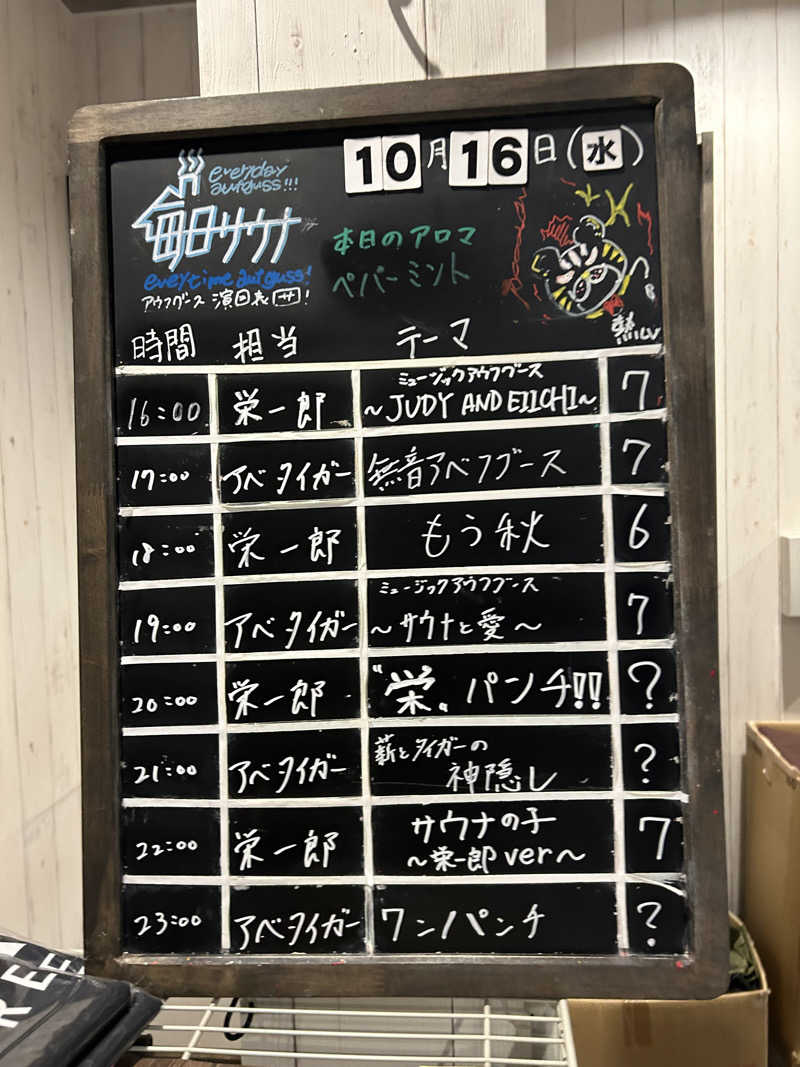 everyday
autguss!!!
毎日サウナ
everytime autguss!
アウフグース 演目表 サ!
10月16日(水)
本日のアロマ
ペパーミント
時間 担当 テーマ 熱LV
16:00 栄一郎 ミュージックアウフグース
~JUDY AND EIICHI~ 7
17:00 アベタイガー 無音アベフグース 7
18:00 栄一郎 もう秋 6
19:00 アベタイガー ミュージックアウフグース
~サウナと愛~ 7
20:00 栄一郎 "栄〟パンチ!! ?
21:00 アベタイガー 薪とタイガーの
神隠し ?
22:00 栄一郎 サウナの子
~栄一郎ver~ 7
23:00 アベタイガー ワンパンチ ?